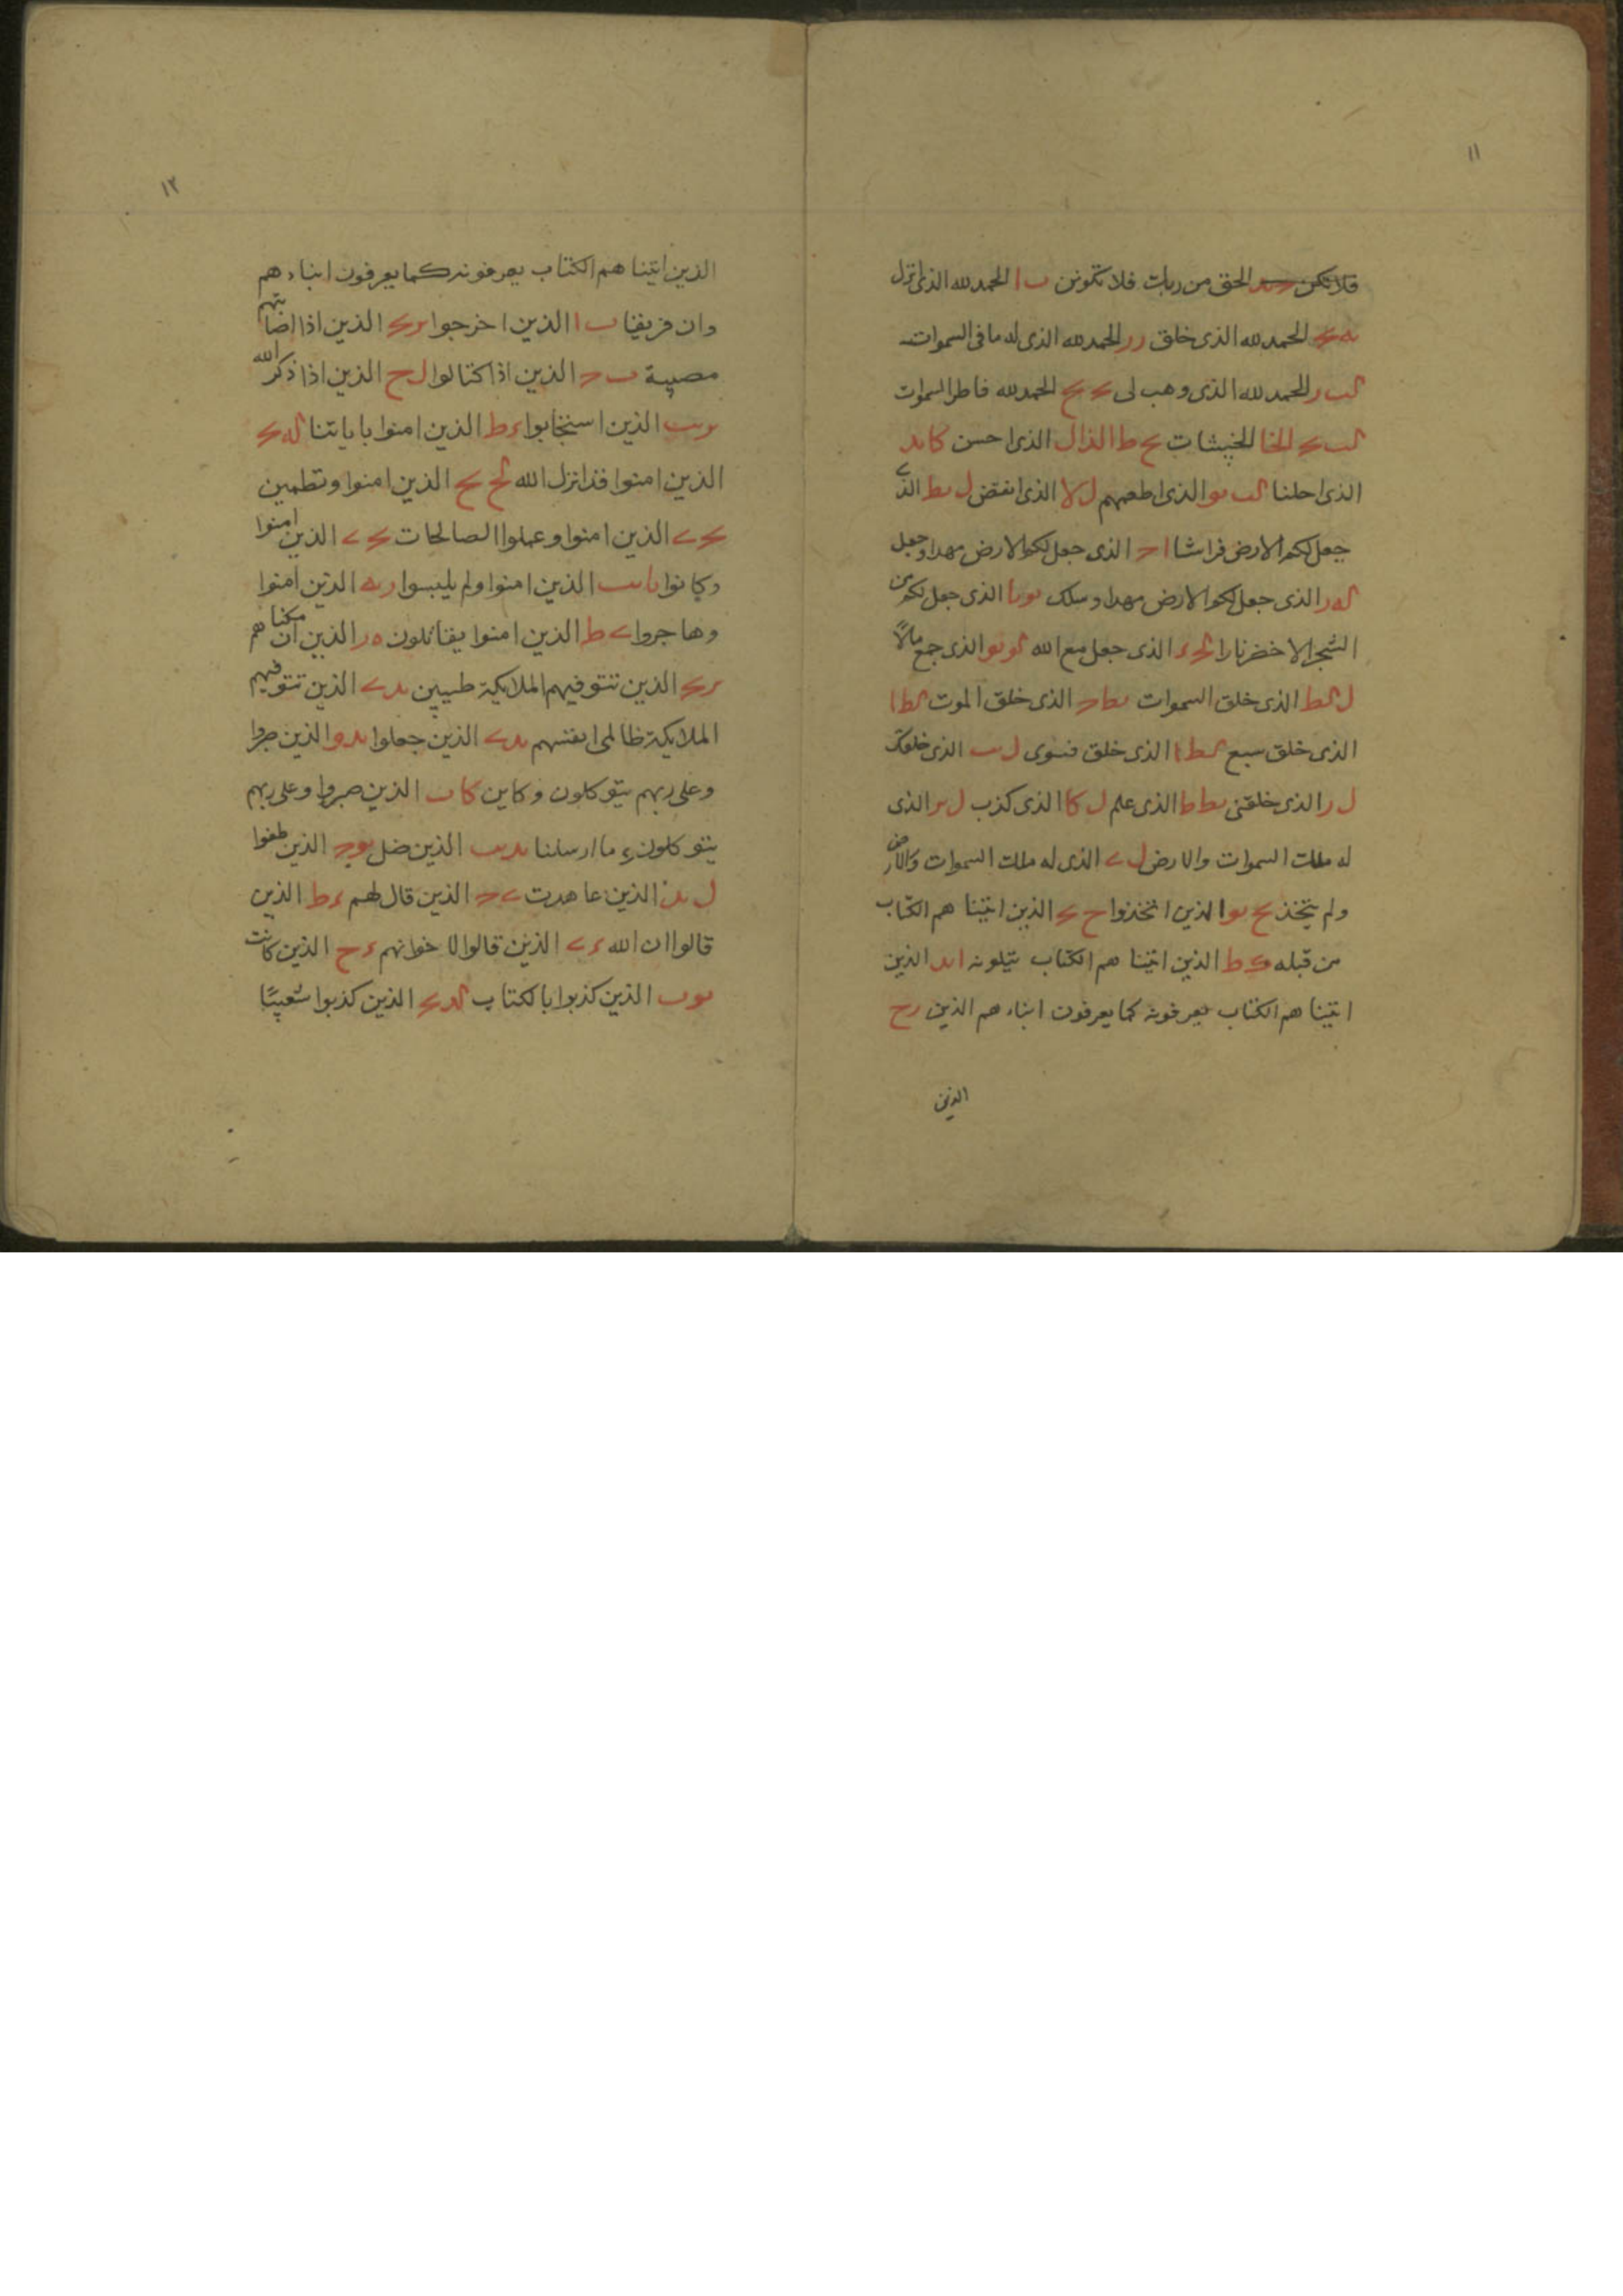 ١١
فلا تكن الحق من ربك فلا تكونن ب ا الحمد لله الذى انزل
الحمد لله الذى خلق رر الحمد لله الذى له ما فى السموات
لب ر الحمد لله الذى وهب لى الحمد لله فاطر السموات
الخا الخبيثات ط الذال الذى احسن كا ند
الذى احلنا الذى اطعمهم ل لا الذى انقض ل بط الذى
جعل لكم الارض فراشا الذى جعل لكم الارض مهدا وجعل
له ر الذى جعل لكم الارض مهدا وسلك الذى جعل لكم من
الشجر الاخضر نارا الذى جعل مع الله الذى جمع مالًا
الذى خلق السموات الذى خلق الموت
الذى خلق سبع الذى خلق فسوى ل ب الذى خلقك
ل ر الذى خلقنى الذى علم ل كا الذى كذب الذى
له ملك السموات والارض الذى له ملك السموات والارض
ولم يتخذ الذين اتخذوا الذين اتينا هم الكتاب
من قبله الذين اتينا هم الكتاب يتلونه الذين
اتينا هم الكتاب يعرفونه كما يعرفون ابناء هم الذين رح
الذين
١٢
الذين اتينا هم الكتاب يعرفونه كما يعرفون ابناء هم
وان فريقا ب ا الذين اخرجوا الذين اذا اصابتهم
مصيبة الذين اذا كتالوا ل ح الذين اذا ذكر الله
الذين استجابوا ء ط الذين امنوا باياتنا
الذين امنوا قد انزل الله الذين امنوا وتطمين
الذين امنوا وعملوا الصالحات الذين امنوا
وكانوا الذين امنوا ولم يلبسوا الذين امنوا
وهاجروا الذين امنوا يقاتلون ه ر الذين ان مكنا هم
الذين تتوفيهم الملايكة طيبين الذين تتوفيهم
الملايكة ظالمى انفسهم الذين جعلوا الذين صبروا
وعلى ربهم يتوكلون وكاين كا ب الذين صبروا وعلى ربهم
يتوكلون وما ارسلنا الذين ضل الذين طغوا
الذين عاهدت الذين قال لهم ء ط الذين
قالوا ان الله الذين قالوا لاخوانهم ء ح الذين كانت
الذين كذبوا بالكتاب الذين كذبوا شعيبًا